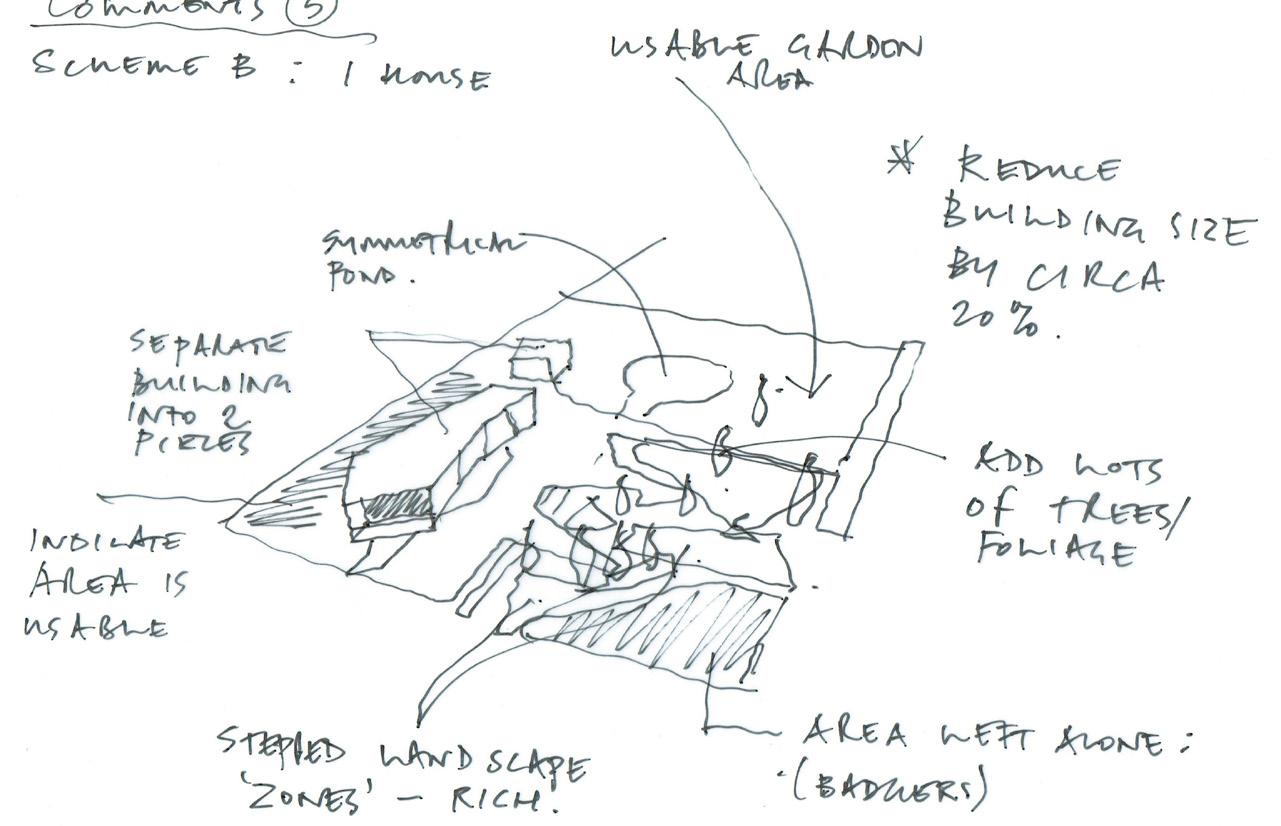 COMMENTS (5)
SCHEME B : 1 HOUSE
USABLE GARDEN
AREA
* REDUCE
BUILDING SIZE
BY CIRCA
20%.
SYMMETRICAL
POND.
SEPARATE
BUILDING
INTO 2
PIECES
INDICATE
AREA IS
USABLE
ADD LOTS
OF TREES/
FOLIAGE
STEPPED LANDSCAPE
'ZONES' - RICH!
AREA LEFT ALONE :
(BADGERS)